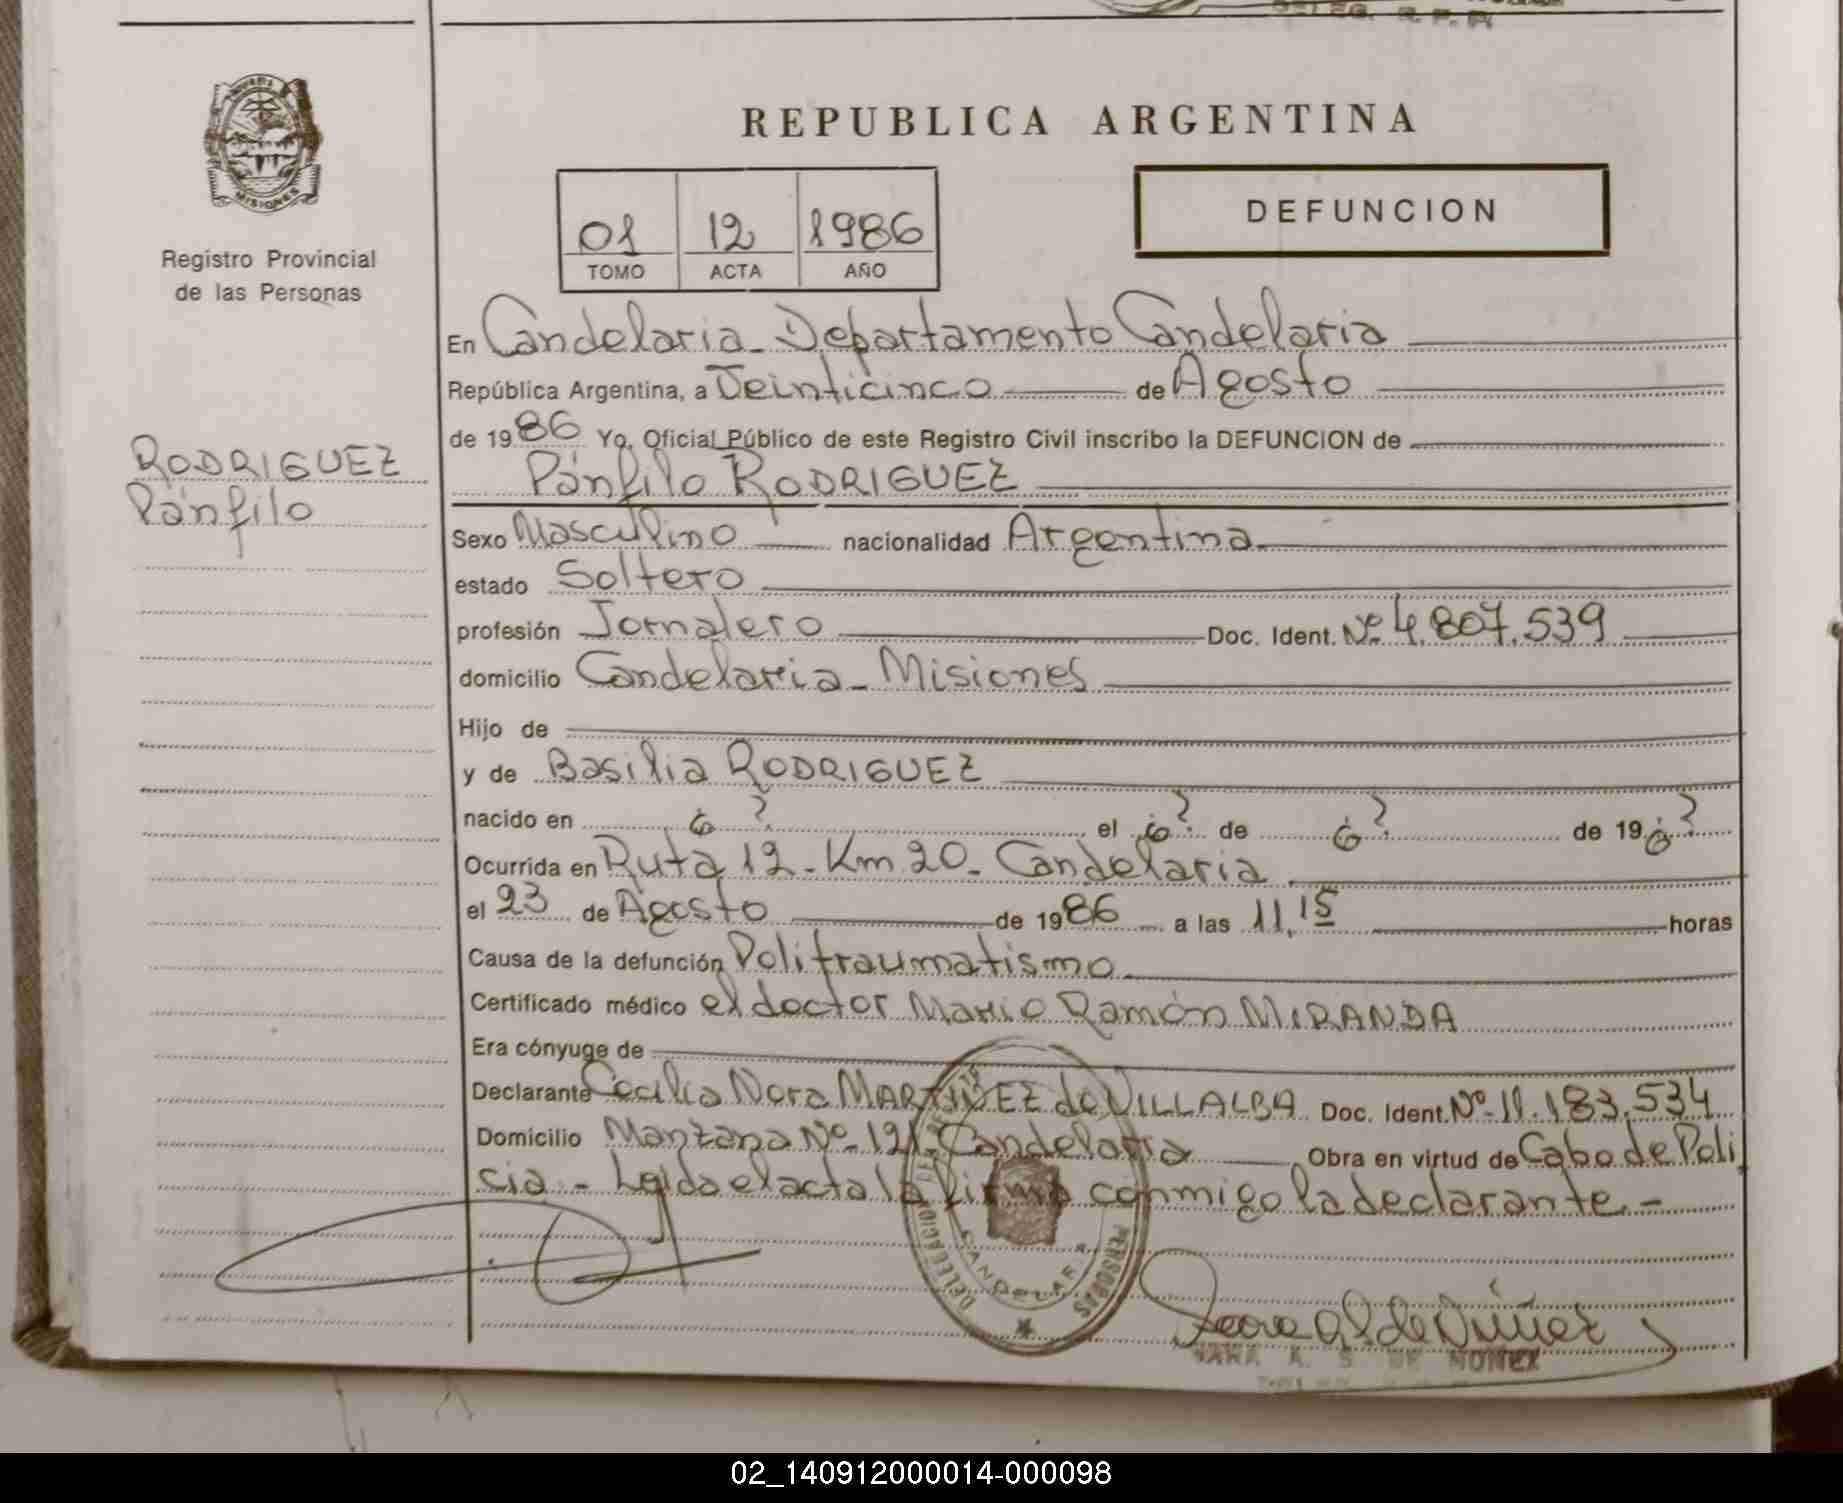 DELEG. R. P. P.
MISIONES
REPUBLICA ARGENTINA
DEFUNCION
01 12 1986
TOMO ACTA AÑO
Registro Provincial
de las Personas
RODRIGUEZ
Pánfilo
En Candelaria - Departamento Candelaria
República Argentina, a Veinticinco de Agosto
de 1986 Yo, Oficial Público de este Registro Civil inscribo la DEFUNCION de
Pánfilo RODRIGUEZ
Sexo Masculino nacionalidad Argentina
estado Soltero
profesión Jornalero Doc. Ident. Nº 4.807.539
domicilio Candelaria - Misiones
Hijo de
y de Basilia RODRIGUEZ
nacido en ¿ ? el ¿ ? de ¿ ? de 19 ¿ ?
Ocurrida en Ruta 12 - Km 20 - Candelaria
el 23 de Agosto de 1986 a las 11,15 horas
Causa de la defunción Politraumatismo
Certificado médico el doctor Mario Ramón MIRANDA
Era cónyuge de
Declarante Cecilia Nora MARTINEZ de VILLALBA Doc. Ident. Nº 11.183.534
Domicilio Manzana Nº 121 Candelaria Obra en virtud de Cabo de Poli
cia - Leída el acta la firma conmigo la declarante.-
DELEGACION DE PERSONAS
CANDELARIA
A. S. DE NUÑEZ
02_140912000014-000098